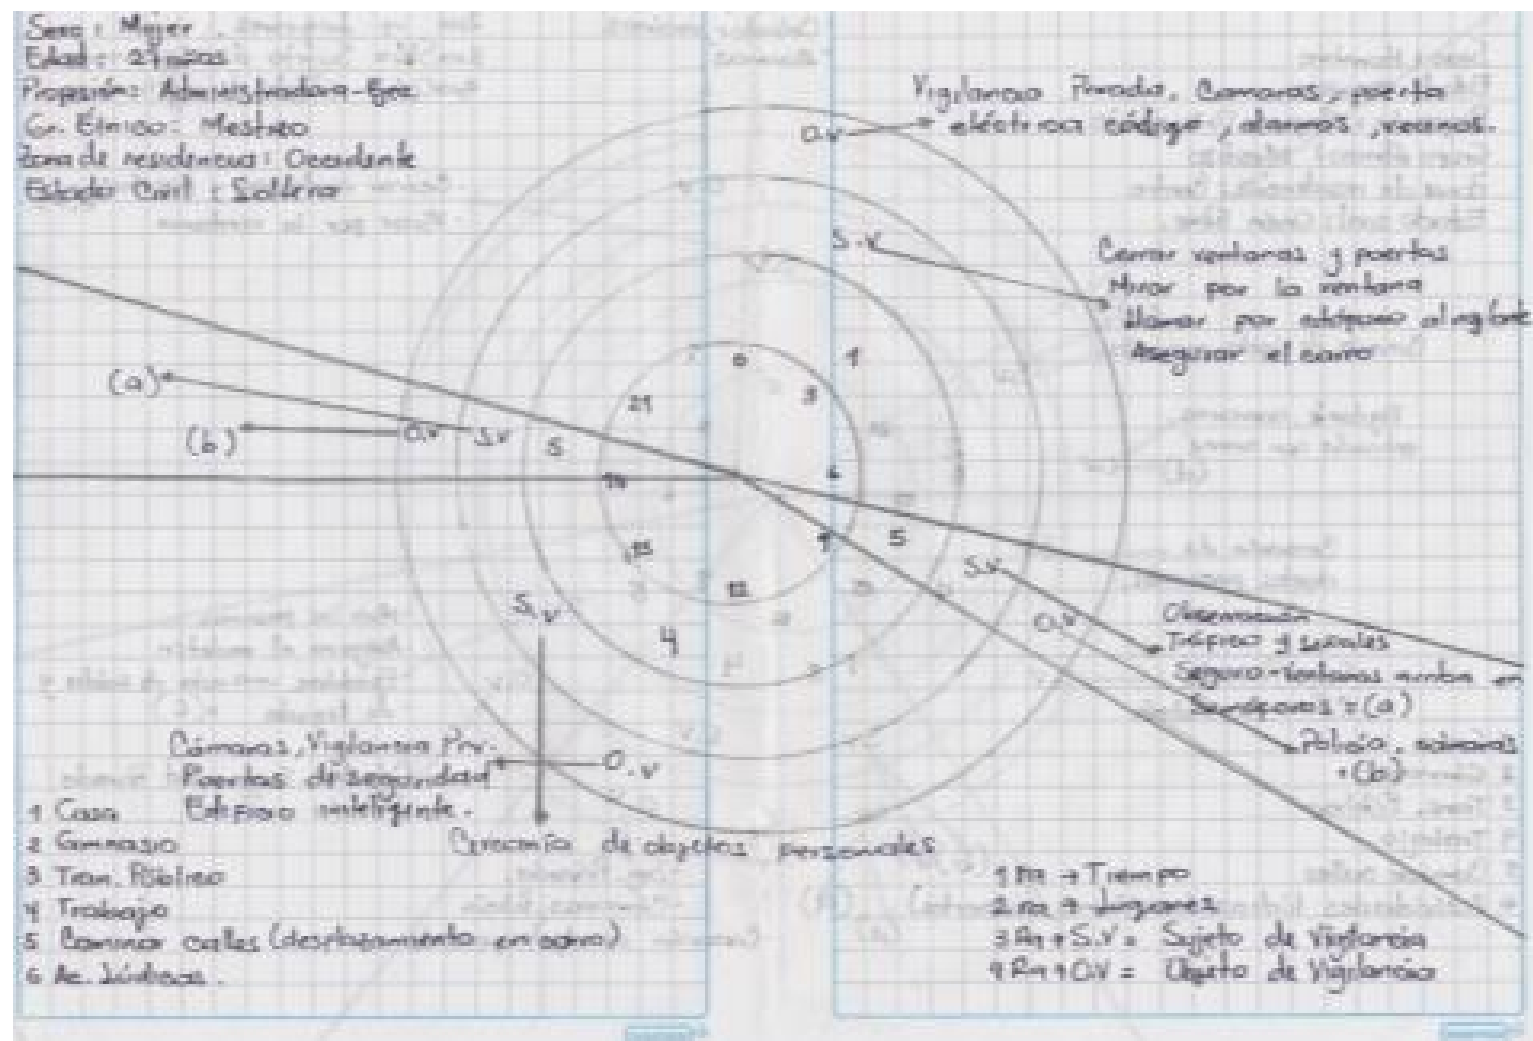 Sexo: Mujer.
Edad: 27 años
Profesión: Administradora-Ejec
Gr. Étnico: Mestizo
Zona de residencia: Occidente
Estado Civil: Soltera
Vigilancia Privada, Camaras, puerta
eléctrica código, alarmas, vecinos.
O.V
S.V
Cerrar ventanas y puertas
Mirar por la ventana
Llamar por al vigilante
Asegurar el carro
(a)
(b)
O.V
S.V
5
21
0
3
1
6
18
15
12
9
5
S.V
O.V
4
Observación
Tráfico y señales
Seguro-Ventanas arriba en
Semáforos = (a)
Policía, cámaras
(b)
S.V
O.V
Cámaras, Vigilancia Priv.
Puertas de seguridad
Edificio inteligente.
Cercanía de objetos personales
1 Casa
2 Gimnasio
3 Tran. Público
4 Trabajo
5 Caminar calles (desplazamiento en carro)
6 Ac. Lúdicas.
1 Rn → Tiempo
2 Rn → Lugares
3 Rn → S.V = Sujeto de Vigilancia
4 Rn → O.V = Objeto de Vigilancia